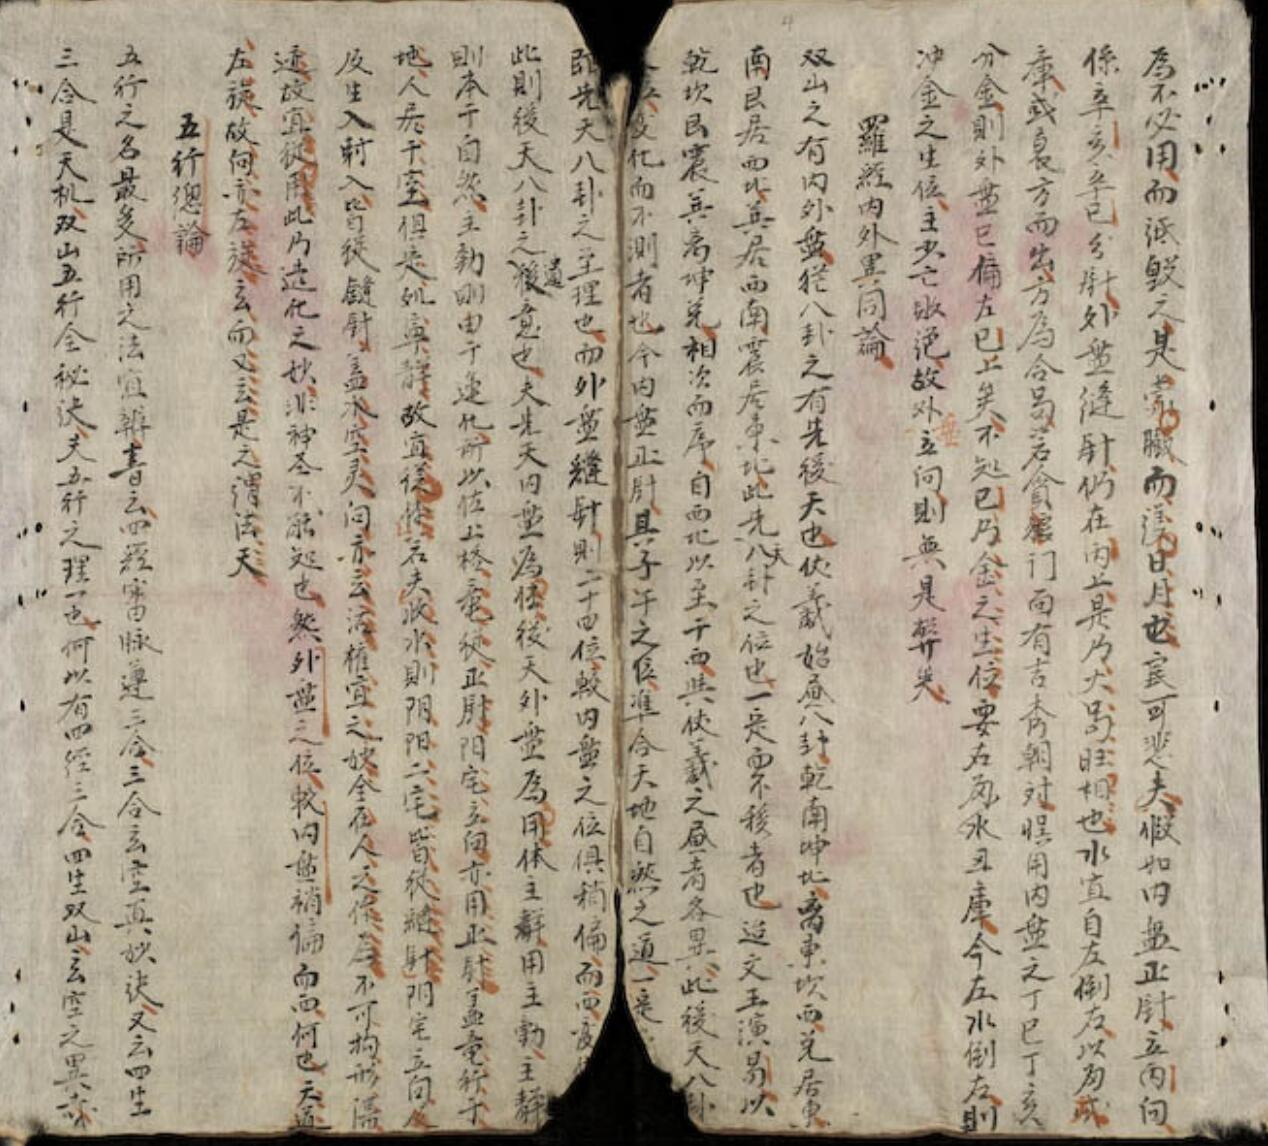 為不必用而詆毀之是蒙瞞而漫日月也哀可悲夫假如內盤正針立丙向
係辛亥辛巳分針外盤縫針仍在丙上是乃大局旺相也水宜自左倒右以為戌
庫或良方而出方為合局若貪狼门面有吉秀朝对悞用內盤之丁巳丁亥
分金則外盤已偏左巳上矣不知巳乃金之生位要右來水丑庫今左水倒左則
冲金之生位主少亡敗絶故外盤立向則無是弊矣
羅經內外異同論
双山之有內外盤猶八卦之有先後天也伏羲始畫八卦乾南坤北离東坎西兌居東
南艮居西北巽居西南震居東北此先天八卦之位也一定而不移者也迨文王演易以
乾坎艮震巽离坤兌相次而序自西北以至于西與伏羲之畫者各異此後天八卦
变化而不測者也今內盤正針具子午之位準合天地自然之道一定
即先天八卦之至理也而外盤縫針則二十四位較內盤之位俱稍偏而西变
此則後天八卦之遺意也夫先天內盤為体後天外盤為用体主靜用主動主靜
則本于自然主動則由于造化所以位上格竜從正針阳宅立向亦用正針盖竜行于
地人居于室俱是孔寧靜故宜從体若夫收水則阴阳二宅皆從縫針阴宅立向
反生入尅入皆從縫針盖水空灵向亦云活權宜之妙全在人之作為不可拘形滯
迹故宜從用此乃造化之妙非神圣不能知也然外盤之位較內盤稍偏而西何也天道
左旋故向亦左旋玄而又玄是之渭法天
五行總論
五行之名最多所用之法宜辨書云四經富脉遵三合三合玄空真妙诀又云四生
三合是天机双山五行全秘诀夫五行之理一也何以有四经三合四生双山玄空之異亦